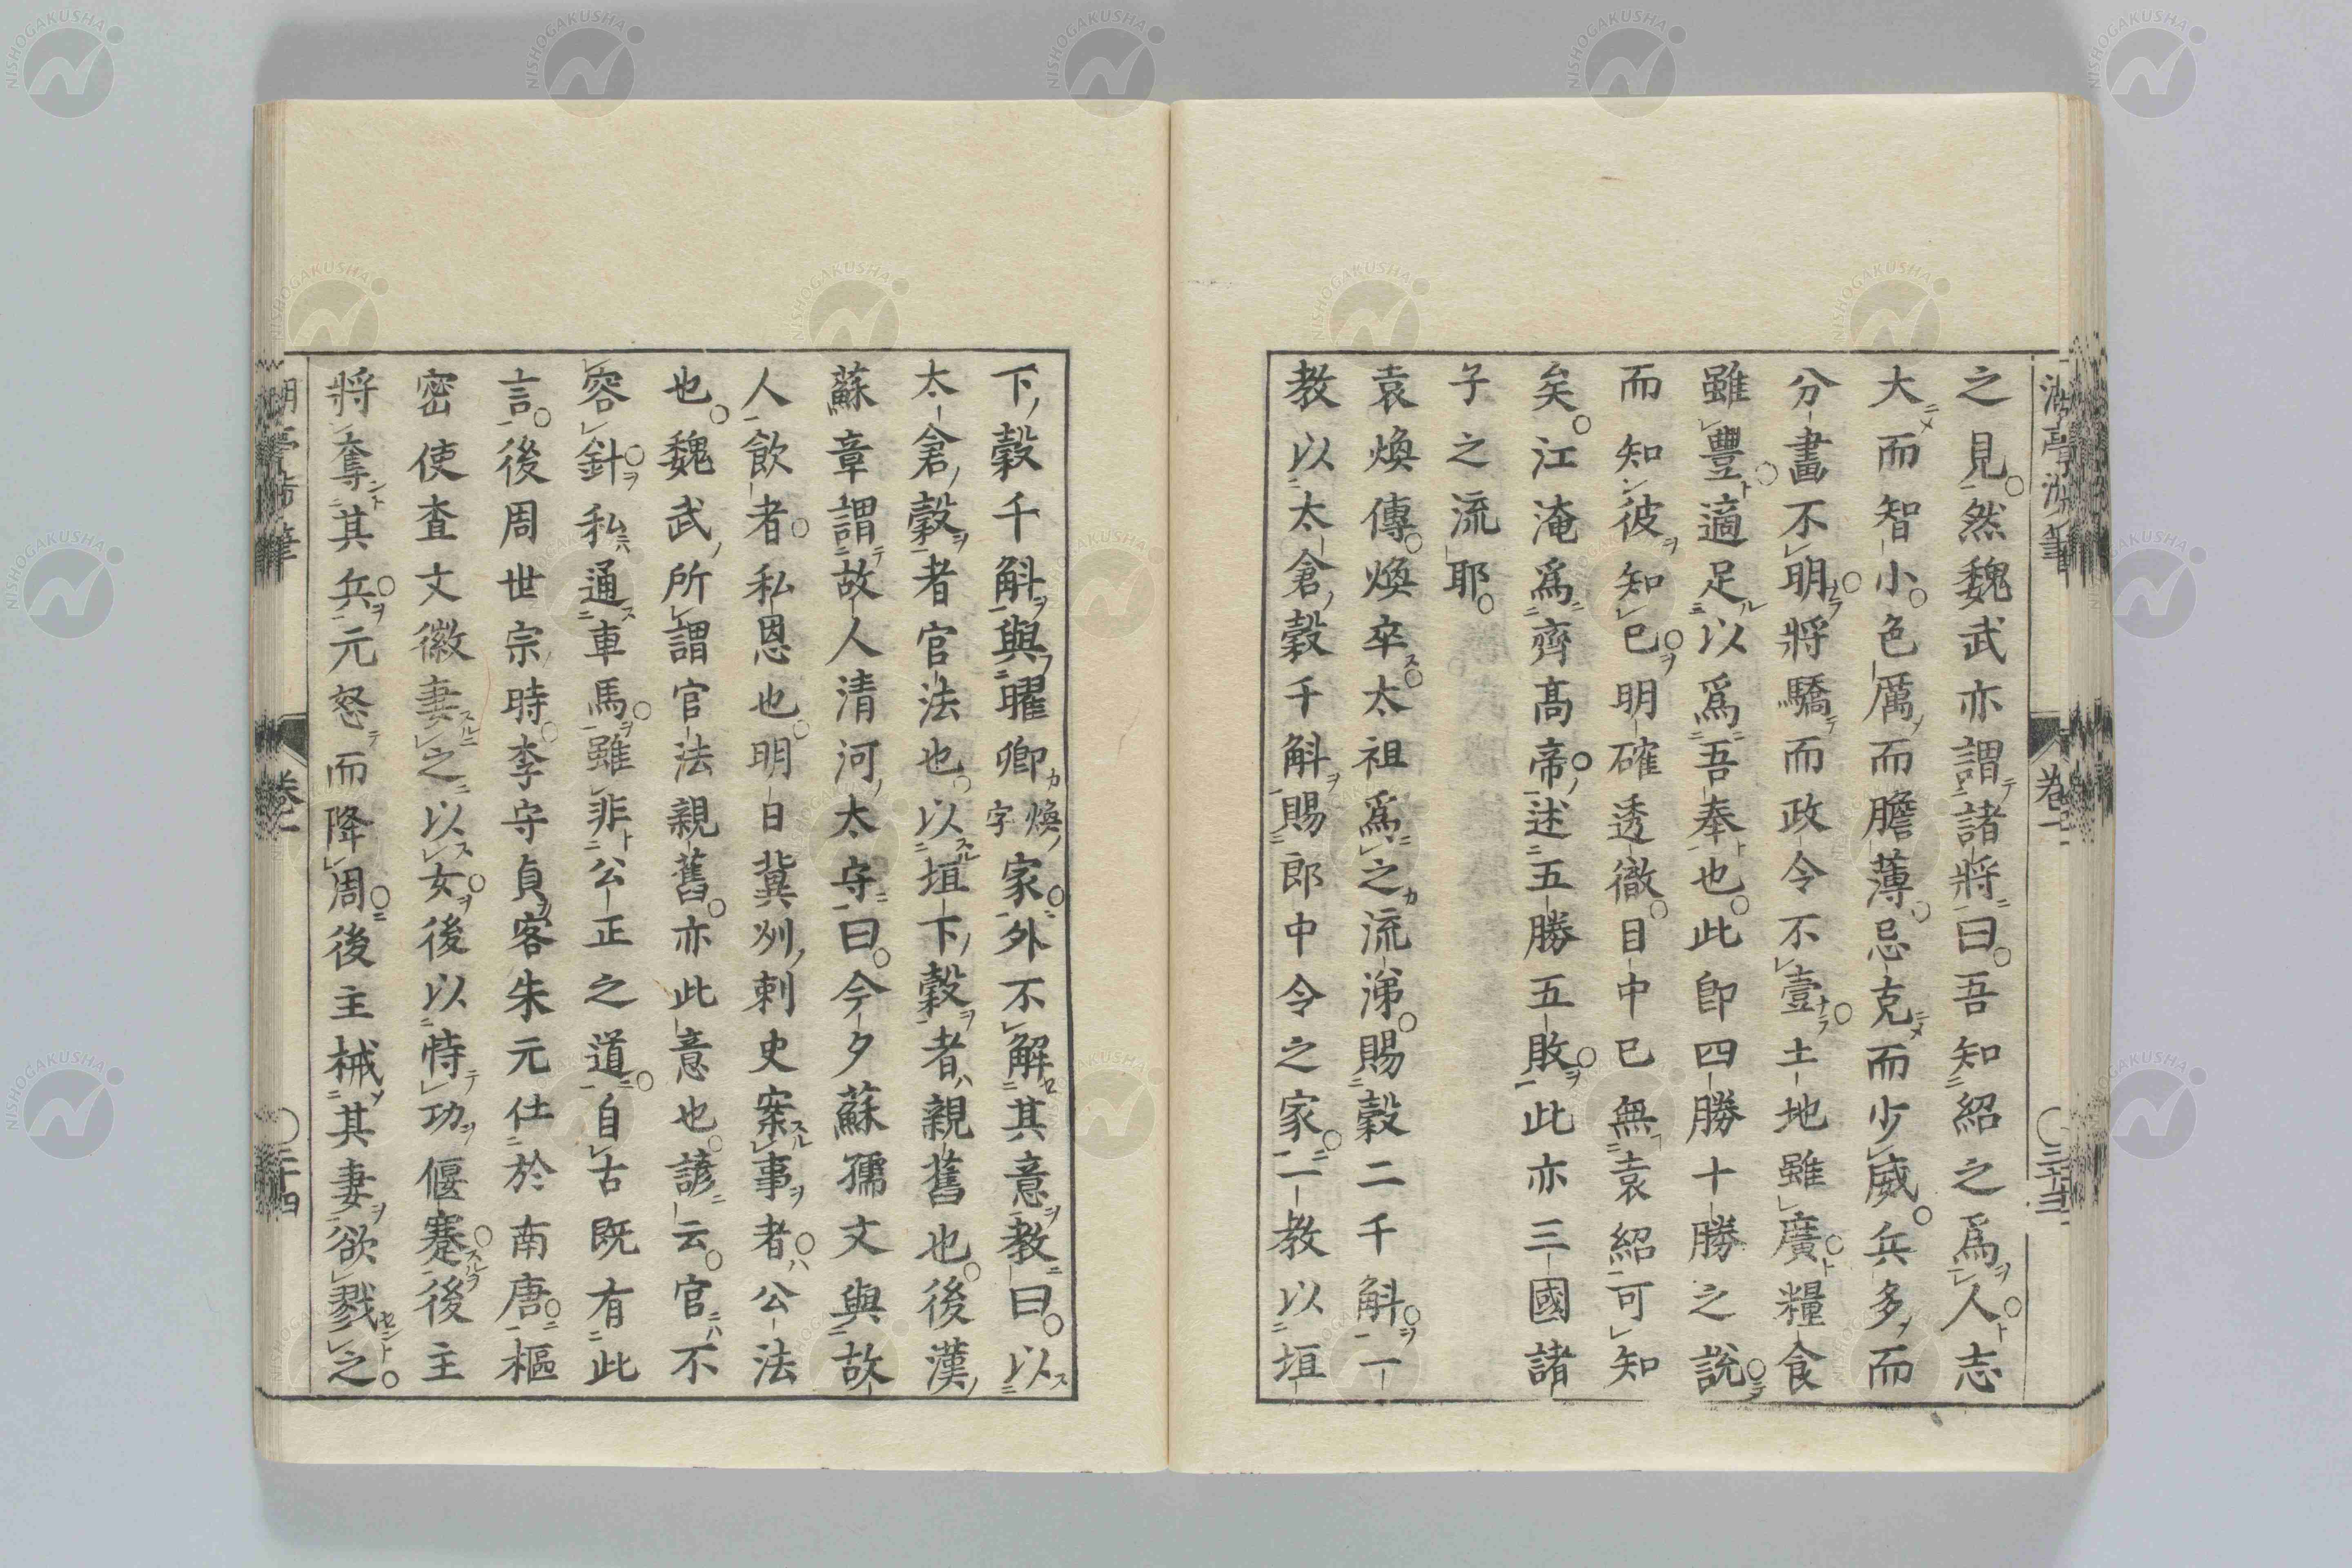 之見然魏武亦謂諸將曰吾知紹之爲人志
大而智小色厲而膽薄忌克而少威兵多而
分畫不明將驕而政令不壹土地雖廣糧食
雖豐適足以爲吾奉也此卽四勝十勝之說
而知彼知己明確透徹目中已無袁紹可知
矣江淹爲齊高帝述五勝五敗此亦三國諸
子之流耶
袁煥傳煥卒太祖爲之流涕賜穀二千斛一
教以太倉穀千斛賜郎中令之家一教以垣
下穀千斛與曜卿煥字家外不解其意教曰以
太倉穀者官法也以垣下穀者親舊也後漢
蘇章謂故人清河太守曰今夕蘇孺文與故
人飲者私恩也明日冀州刺史案事者公法
也魏武所謂官法親舊亦此意也諺云官不
容針私通車馬雖非公正之道自古既有此
言後周世宗時李守貞客朱元仕於南唐樞
密使査文徽妻之以女後以恃功偃蹇後主
將奪其兵元怒而降周後主械其妻欲戮之